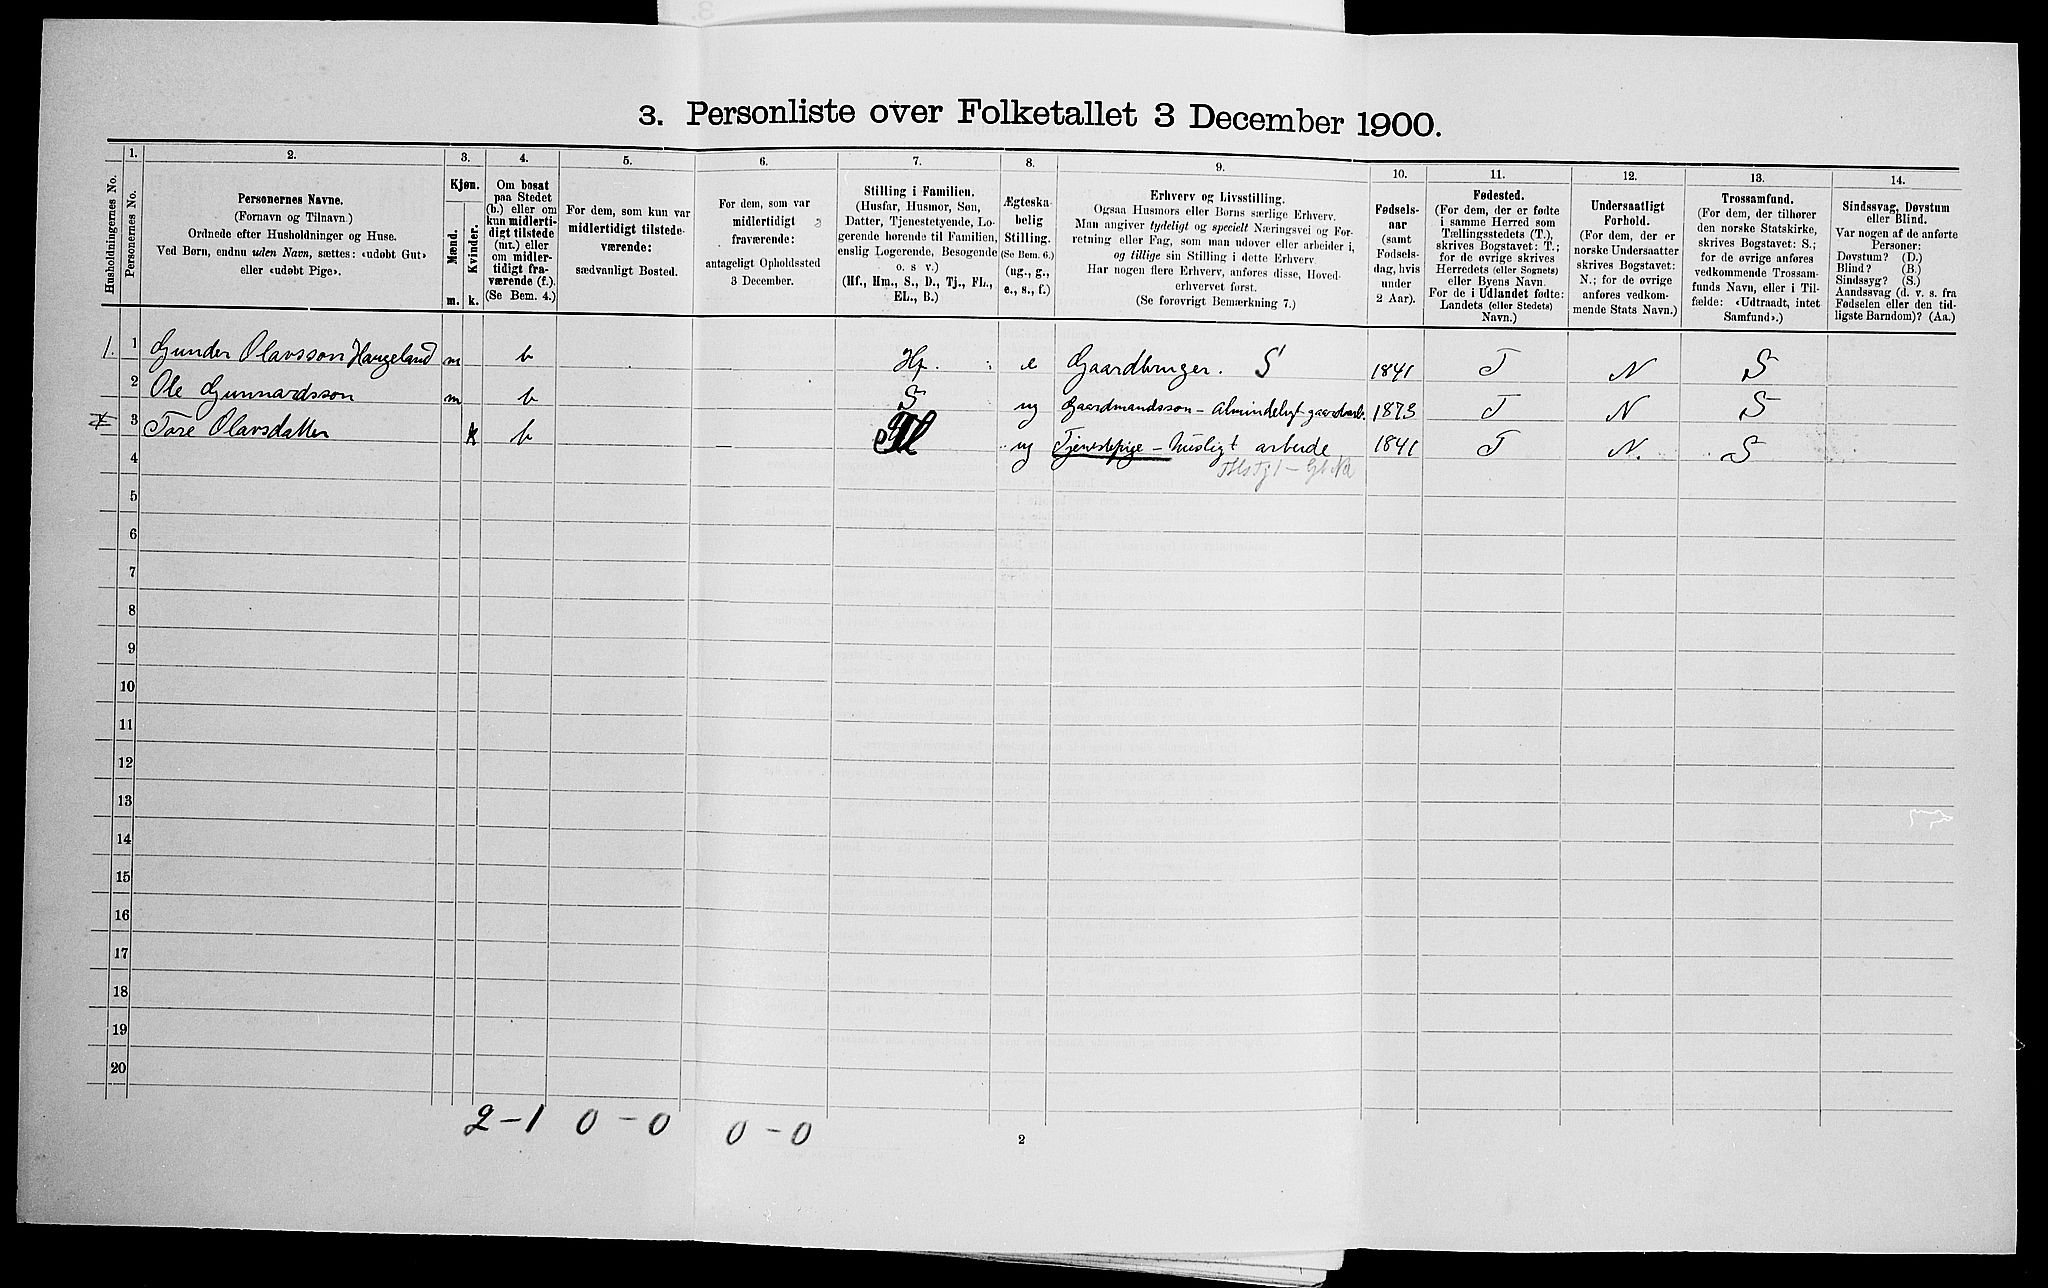 3. Personliste over Folketallet 3 December 1900.
Husholdningernes No.
1.
Personernes No.
2.
Personernes Navne.
(Fornavn og Tilnavn.)
Ordnede efter Husholdninger og Huse.
Ved Børn, endnu uden Navn, sættes: «udøbt Gut»
eller «udøbt Pige».
3.
Kjøn.
Mænd.
Kvinder.
m.
k.
4.
Om bosat
paa Stedet
(b.) eller om
kun midlerti-
digt tilstede
(mt.) eller
om midler-
tidigt fra-
værende (f.).
(Se Bem. 4.)
5.
For dem, som kun var
midlertidigt tilstede-
værende:
sædvanligt Bosted.
6.
For dem, som var
midlertidigt
fraværende:
antageligt Opholdssted
3 December.
7.
Stilling i Familien.
(Husfar, Husmor, Søn,
Datter, Tjenestetyende, Lo-
gerende hørende til Familien,
enslig Logerende, Besøgende
o. s v.)
(Hf., Hm., S., D., Tj., FL.,
EL., B.)
8.
Ægteska-
belig
Stilling.
(Se Bem. 6.)
(ug., g.,
e., s., f.)
9.
Erhverv og Livsstilling.
Ogsaa Husmors eller Børns særlige Erhverv.
Man angiver tydeligt og specielt Næringsvei og For-
retning eller Fag, som man udover eller arbeider i,
og tillige sin Stilling i dette Erhverv
Har nogen flere Erhverv, anføres disse, Hoved-
erhvervet først.
(Se forøvrigt Bemærkning 7.)
10.
Fødsels-
aar
(samt
Fødsels-
dag, hvis
under
2 Aar).
11.
Fødested.
(For dem, der er fødte
i samme Herred som
Tællingsstedets (T.),
skrives Bogstavet: T.;
for de øvrige skrives
Herredets (eller Sognets)
eller Byens Navn.
For de i Udlandet fødte:
Landets (eller Stedets)
Navn.)
12.
Undersaatligt
Forhold.
(For dem, der er
norske Undersaatter
skrives Bogstavet:
N.; for de øvrige
anføres vedkom-
mende Stats Navn.)
13.
Trossamfund.
(For dem, der tilhører
den norske Statskirke,
skrives Bogstavet: S.;
for de øvrige anføres
vedkommende Trossam-
funds Navn, eller i Til-
fælde: «Udtraadt, intet
Samfund».)
14.
Sindssvag, Døvstum
eller Blind.
Var nogen af de anførte
Personer:
Døvstum? (D.)
Blind? (B.)
Sindssyg? (S.)
Aandssvag (d. v. s. fra
Fødselen eller den tid-
ligste Barndom)? (Aa.)
1. 1 Gunder Olavsson Haugeland m b Hf. e Gaardbruger. S 1841 T N S
2 Ole Gunnardsson m b S ug Gaardmandsson – almindeligt gaardsarb. 1873 T N S
3 Tore Olavsdatter k b ug Tjenestepige – husligt arbeide 1841 T N. S
4
5
6
7
8
9
10
11
12
13
14
15
16
17
18
19
20
2 – 1 0 – 0 0 – 0
2